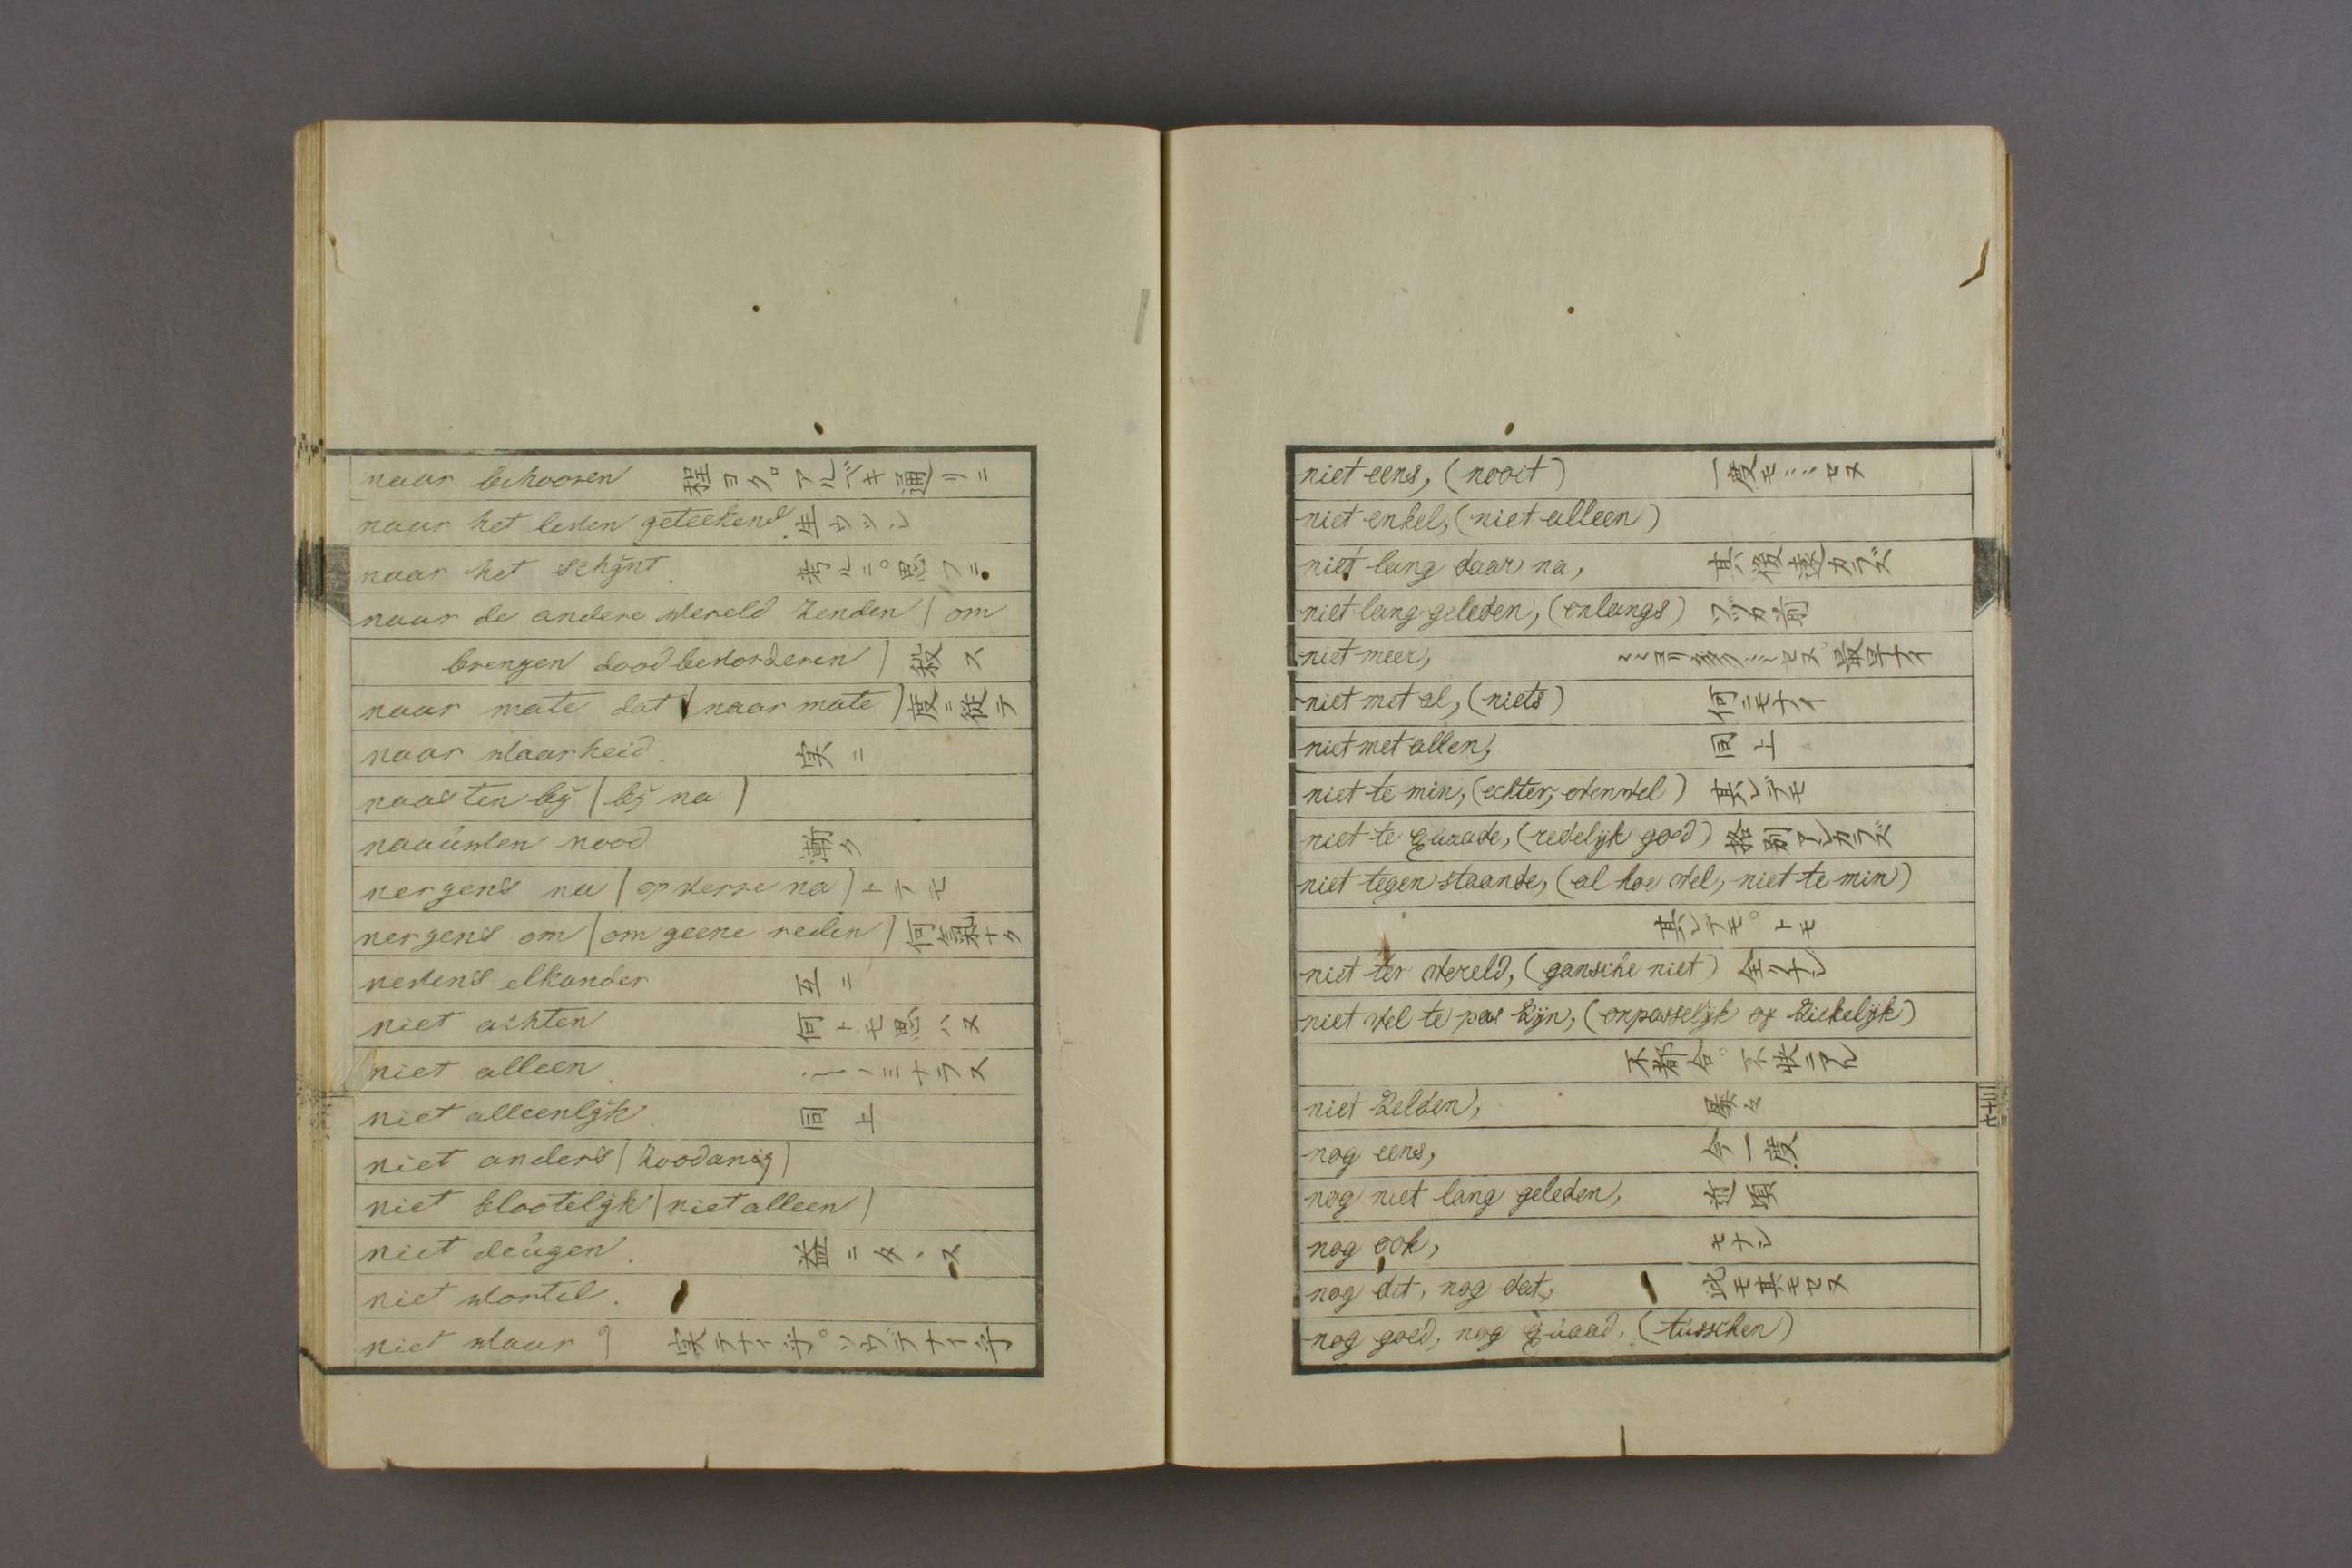 naar behooren 程ヨク。アルベキ通リニ
naar het leven geteekend. 生ウツシ
naar het schijnt. 考ルニ。思フニ
naar de andere wereld zenden (om
brengen dood bevorderen) 殺ス
naar mate dat (naar mate) 度ニ従テ
naar waarheid. 実ニ
naasten bij (bij na)
naaúwen nood 漸ク
nergens na (op verre na) トテモ
nergens om (om geene reden) 何氣ナク
nevens elkander 互ニ
niet achten 何トモ思ハヌ
niet alleen. ノミナラス
niet alleenlijk. 同上
niet anders (zoodanig)
niet blootelijk (niet alleen)
niet deúgen. 益ニタヽス
niet wortel.
niet waar ? 実テナイ乎。ソウデナイ乎
niet eens, (nooit) 一度モ……セヌ
niet enkel, (niet alleen)
niet lang daar na, 其後遠カラズ
niet lang geleden, (onlangs) ツカ前
niet meer, ヨリ多ク……セヌ 最早ナイ
niet met al, (niets) 何ニモナイ
niet met allen, 同上
niet te min, (echter, evenwel) 其レデモ
niet te qúaade, (redelijk goed) 格別アシカラズ
niet tegen staande, (al hoe wel, niet te min)
其レデモ。トモ
niet ter wereld, (gansche niet) 全クナシ
niet wel te pas zijn, (onpasselijk of ziekelijk)
不都合。不快ニアル
niet zelden, 屡々
nog eens, 今一度
nog niet lang geleden, 近頃
nog ook, モナシ
nog dit, nog dat, 此モ其モセヌ
nog goed, nog qúaad, (tússchen)